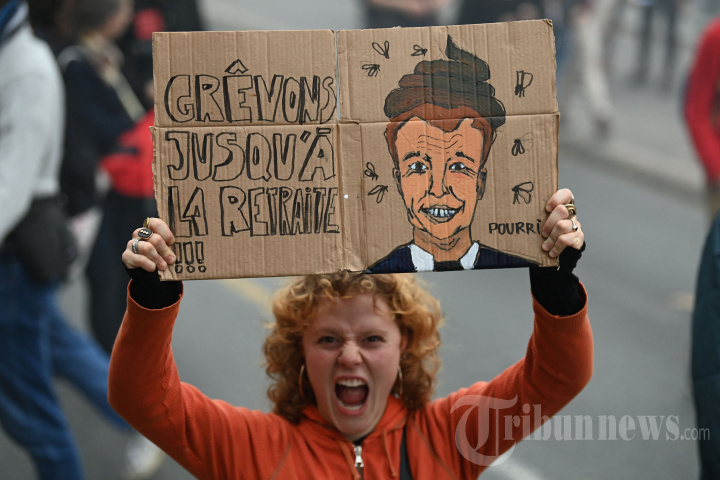 GRÊVONS
JUSQU'À
LA RETRAITE
!!!
POURRI
Tribunnews.com